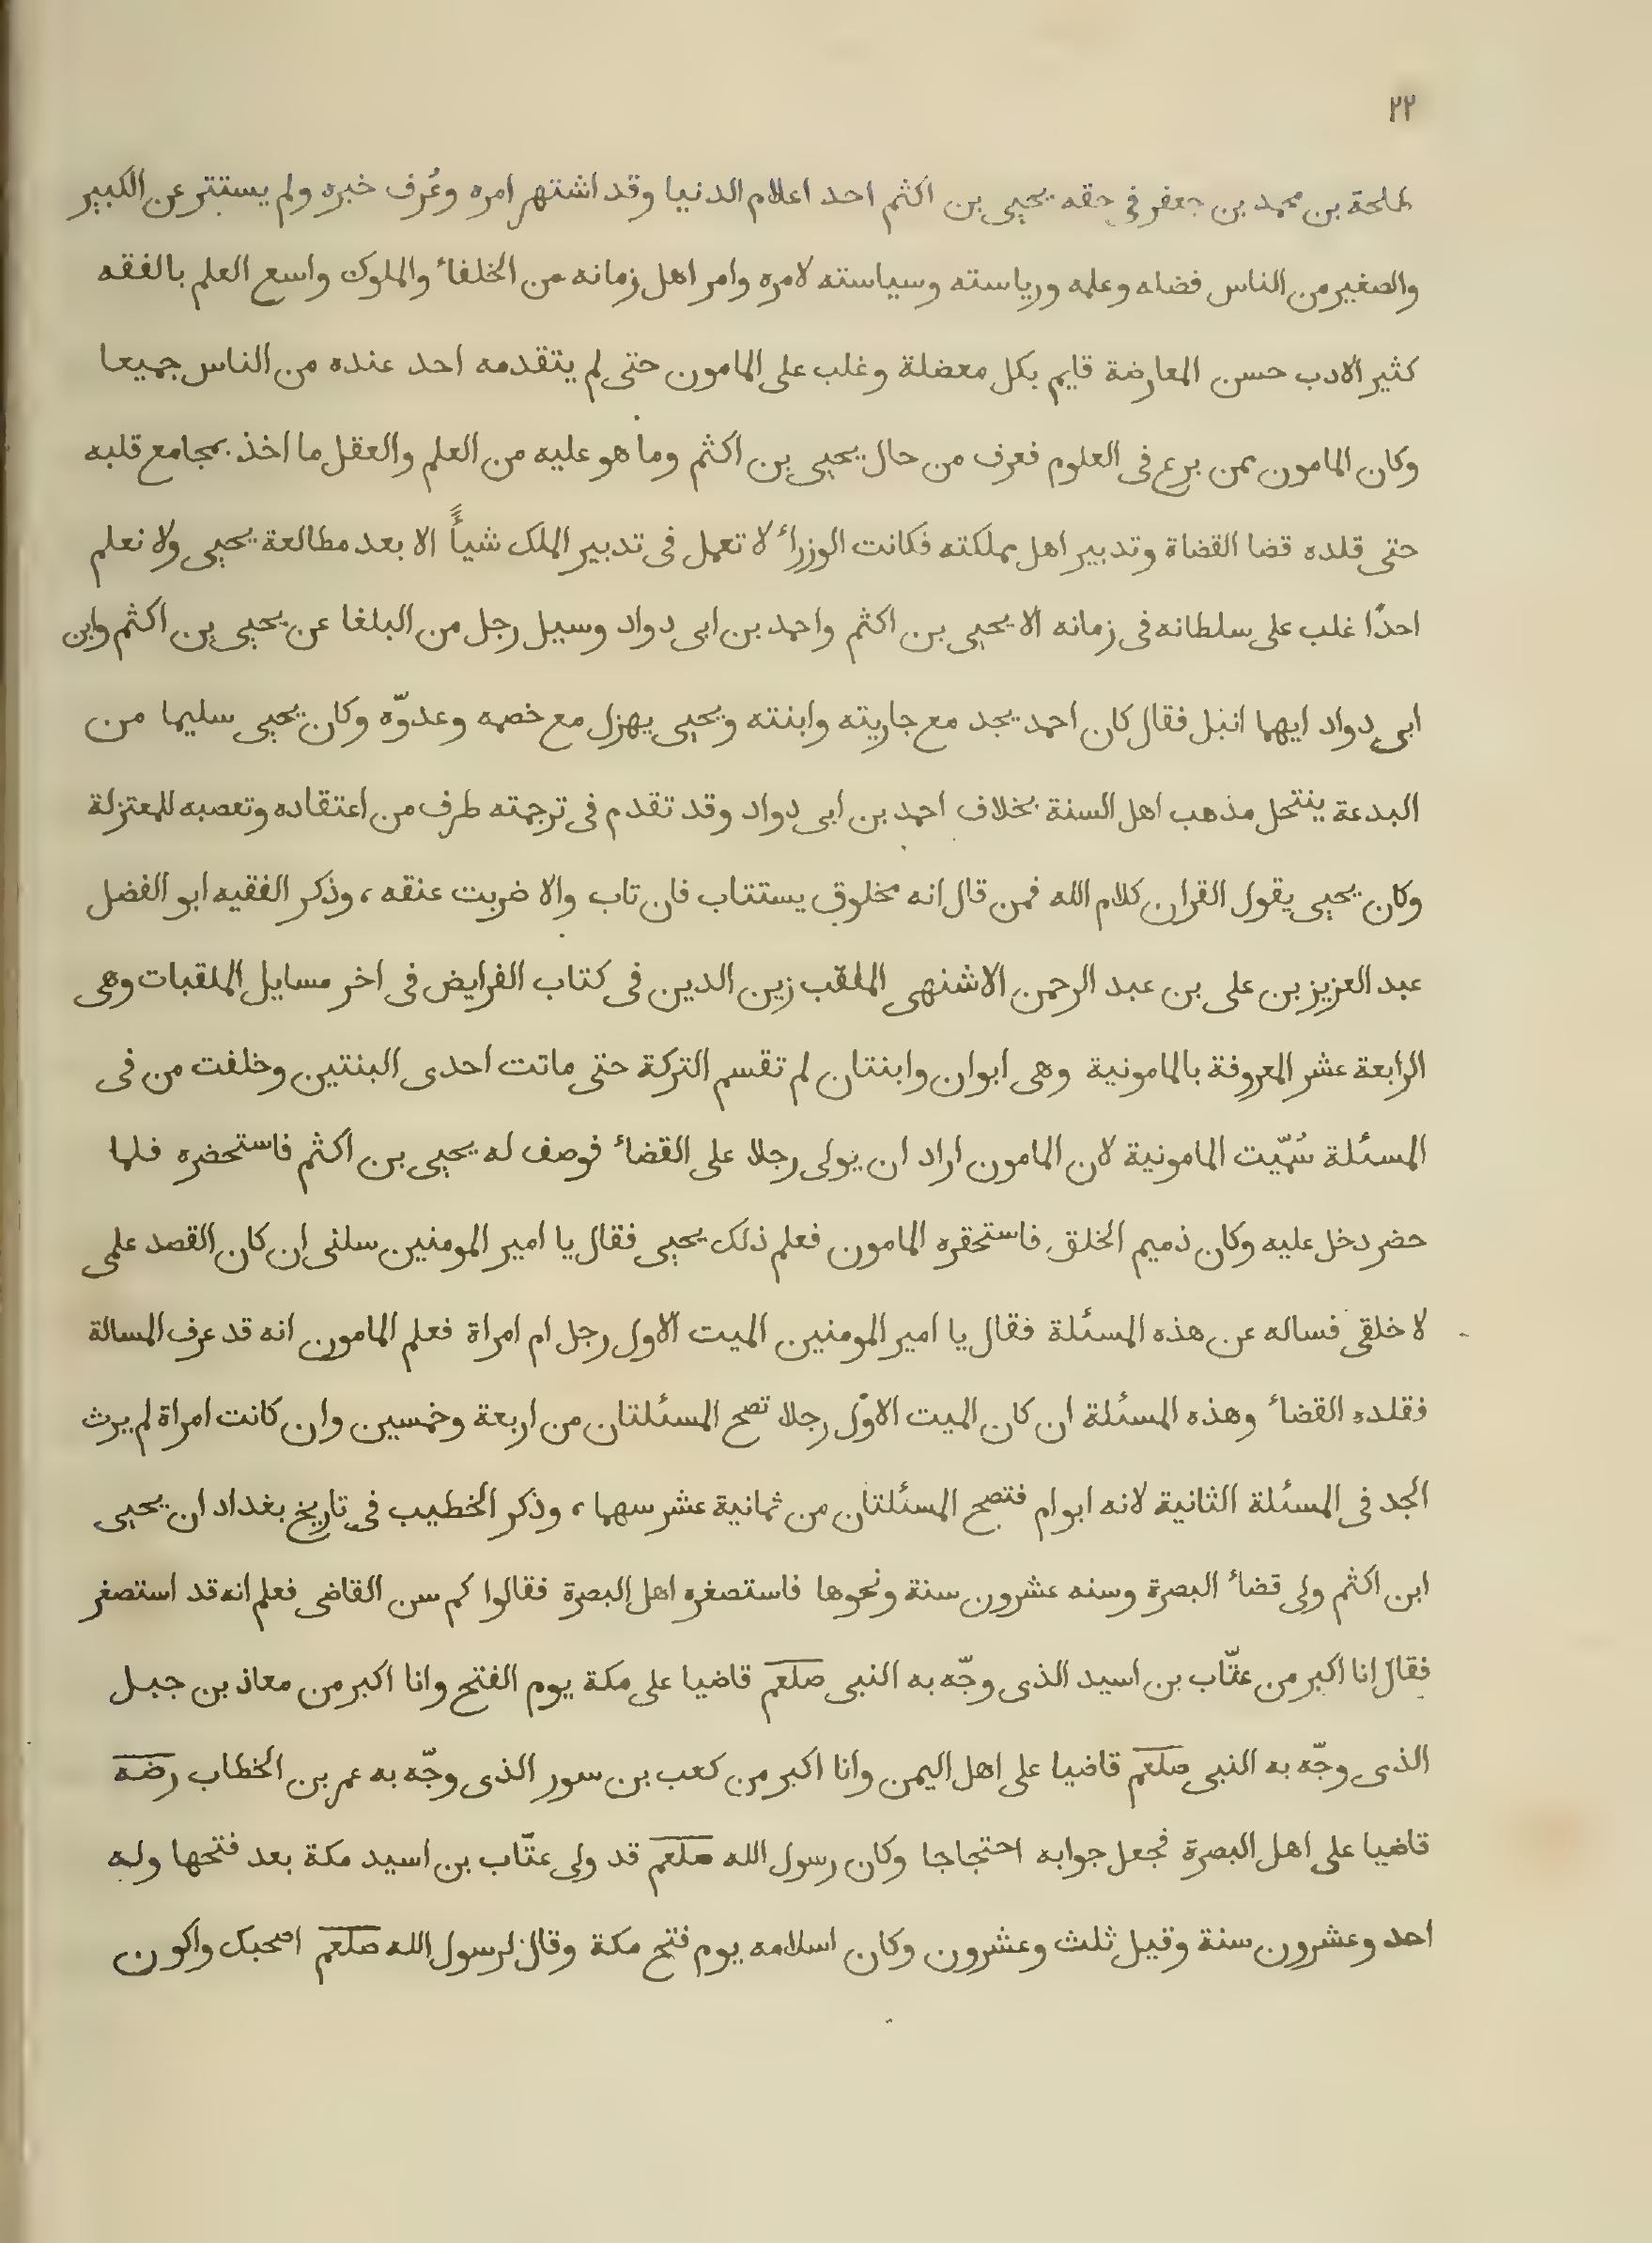 ٢٢
طلحة بن محمد بن جعفر في حقه يحيى بن اكثم احد اعلام الدنيا وقد اشتهر امره وعُرف خبره ولم يستتر عن الكبير
والصغير من الناس فضله وعلمه ورياسته وسياسته لامره وامر اهل زمانه من الخلفاء والملوك واسع العلم بالفقه
كثير الادب حسن المعارضة قايم بكل معضلة وغلب على المامون حتى لم يتقدمه احد عنده من الناس جميعا
وكان المامون ممن برع فى العلوم فعرف من حال يحيى بن اكثم وما هو عليه من العلم والعقل ما اخذ بمجامع قلبه
حتى قلده قضا القضاة وتدبير اهل مملكته فكانت الوزراء لا تعمل فى تدبير الملك شيأً الا بعد مطالعة يحيى ولا نعلم
احدًا غلب على سلطانه فى زمانه الا يحيى بن اكثم واحمد بن ابى دواد وسيل رجل من البلغا عن يحيى بن اكثم وابن
ابى دواد ايهما انبل فقال كان احمد يجد مع جاريته وابنته ويحيى يهزل مع خصمه وعدوّه وكان يحيى سليما من
البدعة ينتحل مذهب اهل السنة بخلاف احمد بن ابى دواد وقد تقدم فى ترجمته طرف من اعتقاده وتعصبه للمعتزلة
وكان يحيى يقول القران كلام الله فمن قال انه مخلوق يستتاب فان تاب والا ضربت عنقه ، وذكر الفقيه ابو الفضل
عبد العزيز بن على بن عبد الرحمن الاشنهى الملقب زين الدين فى كتاب الفرايض فى اخر مسايل الملقبات وهى
الرابعة عشر المعروفة بالمامونية وهى ابوان وابنتان لم تقسم التركة حتى ماتت احدى البنتين وخلفت من فى
المسئلة سُمّيت المامونية لان المامون اراد ان يولى رجلا على القضاء فوصف له يحيى بن اكثم فاستحضره فلما
حضر دخل عليه وكان ذميم الخلق فاستحقره المامون فعلم ذلك يحيى فقال يا امير المومنين سلنى ان كان القصد علمى
لا خلقى فساله عن هذه المسئلة فقال يا امير المومنين الميت الاول رجل ام امراة فعلم المامون انه قد عرف المسالة
فقلده القضاء وهذه المسئلة ان كان الميت الاوّل رجلا تصح المسئلتان من اربعة وخمسين وان كانت امراة لم يرث
الجد فى المسئلة الثانية لانه ابو ام فتصح المسئلتان من ثمانية عشر سهما ، وذكر الخطيب في تاريخ بغداد ان يحيى
ابن اكثم ولى قضاء البصرة وسنه عشرون سنة ونحوها فاستصغره اهل البصرة فقالوا كم سن القاضى فعلم انه قد استصغر
فقال انا اكبر من عتّاب بن اسيد الذى وجّه به النبى صلعم قاضيا على مكة يوم الفتح وانا اكبر من معاذ بن جبل
الذى وجّه به النبى صلعم قاضيا على اهل اليمن وانا اكبر من كعب بن سور الذى وجّه به عمر بن الخطاب رضه
قاضيا على اهل البصرة فجعل جوابه احتجاجا وكان رسول الله صلعم قد ولى عتّاب بن اسيد مكة بعد فتحها وله
احد وعشرون سنة وقيل ثلث وعشرون وكان اسلامه يوم فتح مكة وقال لرسول الله صلعم اصحبك واكون